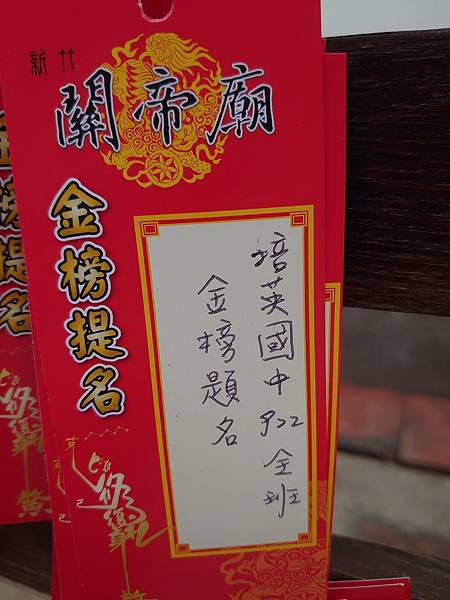 新竹
關帝廟
金榜提名
培英國中922全班
金榜題名